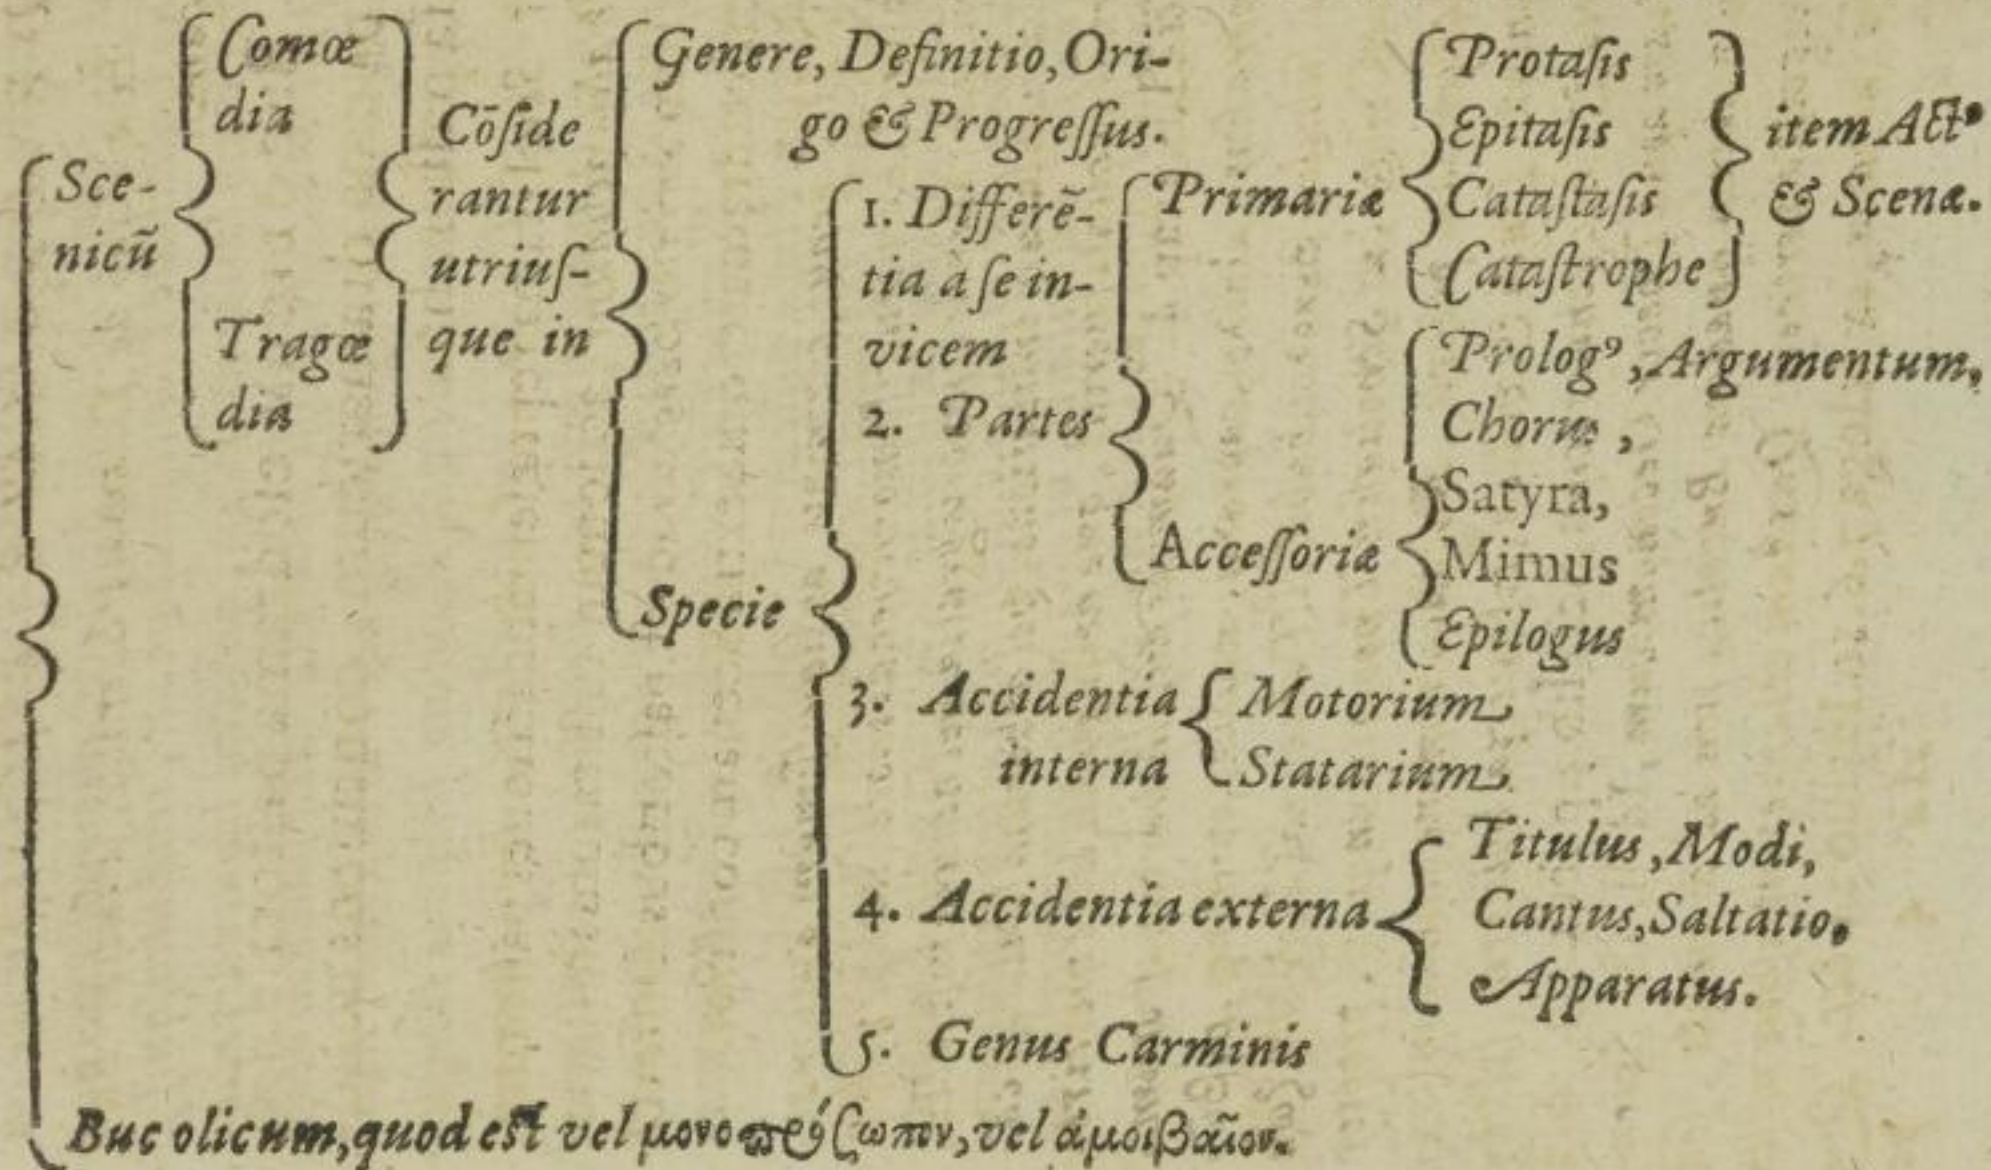 Sce-
nicū
Comœ
dia
Tragœ
dia
Cōſide
rantur
utriuſ-
que in
Genere, Definitio, Ori-
go & Progreſſus.
Specie
1. Differē-
tia à ſe in-
vicem
2. Partes
Primariæ
Protaſis
Epitaſis
Cataſtaſis
Cataſtrophe
item Actꝰ
& Scenæ.
Acceſſoriæ
Prologꝰ, Argumentum,
Chorus,
Satyra,
Mimus
Epilogus
3. Accidentia
interna
Motorium
Statarium
4. Accidentia externa
Titulus, Modi,
Cantus, Saltatio,
Apparatus.
5. Genus Carminis
Bucolicum, quod est vel μονοπρόσωπον, vel ἀμοιβαῖον.